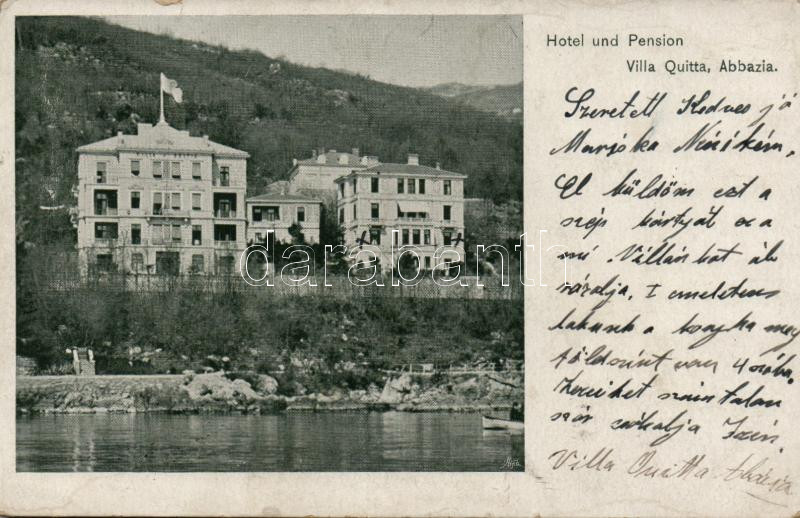 Hotel und Pension
Villa Quitta, Abbazia.
Szeretett Kedves jó
Marjóka Nénikém,
El küldöm ezt a
szép kártyát ez a
mi Villánkat áb
rázolja, I emeleten
lakunk a konyha meg
földszint van 4 szoba,
Kezeiket számtalan
szór csókolja
Villa Quitta Abbázia
darabanth